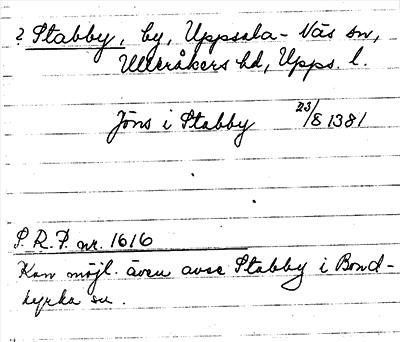 ? Stabby, by, Uppsala-Näs sn,
Ulleråkers hd, Upps. l.
Jöns i Stabby 23/8 1381
S.R.P. nr. 1616
Kan möjl. även avse Stabby i Bond-
kyrka sn.